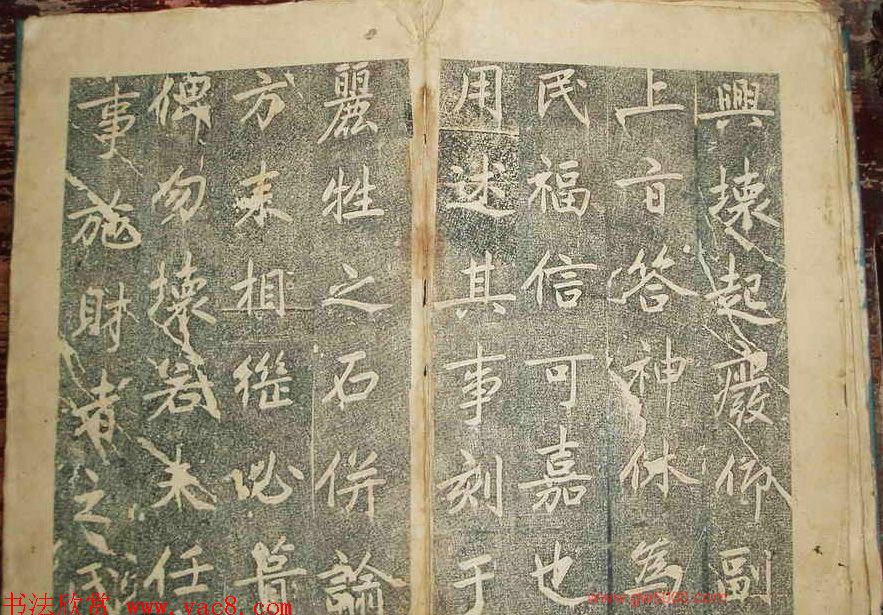 興壞起廢仰副
上旨答神休為
民福信可嘉也
用述其事刻于
麗牲之石併諭
方来相繼必葺
俾勿壞若夫任
事施財者之氏
书法欣赏 www.yac8.com